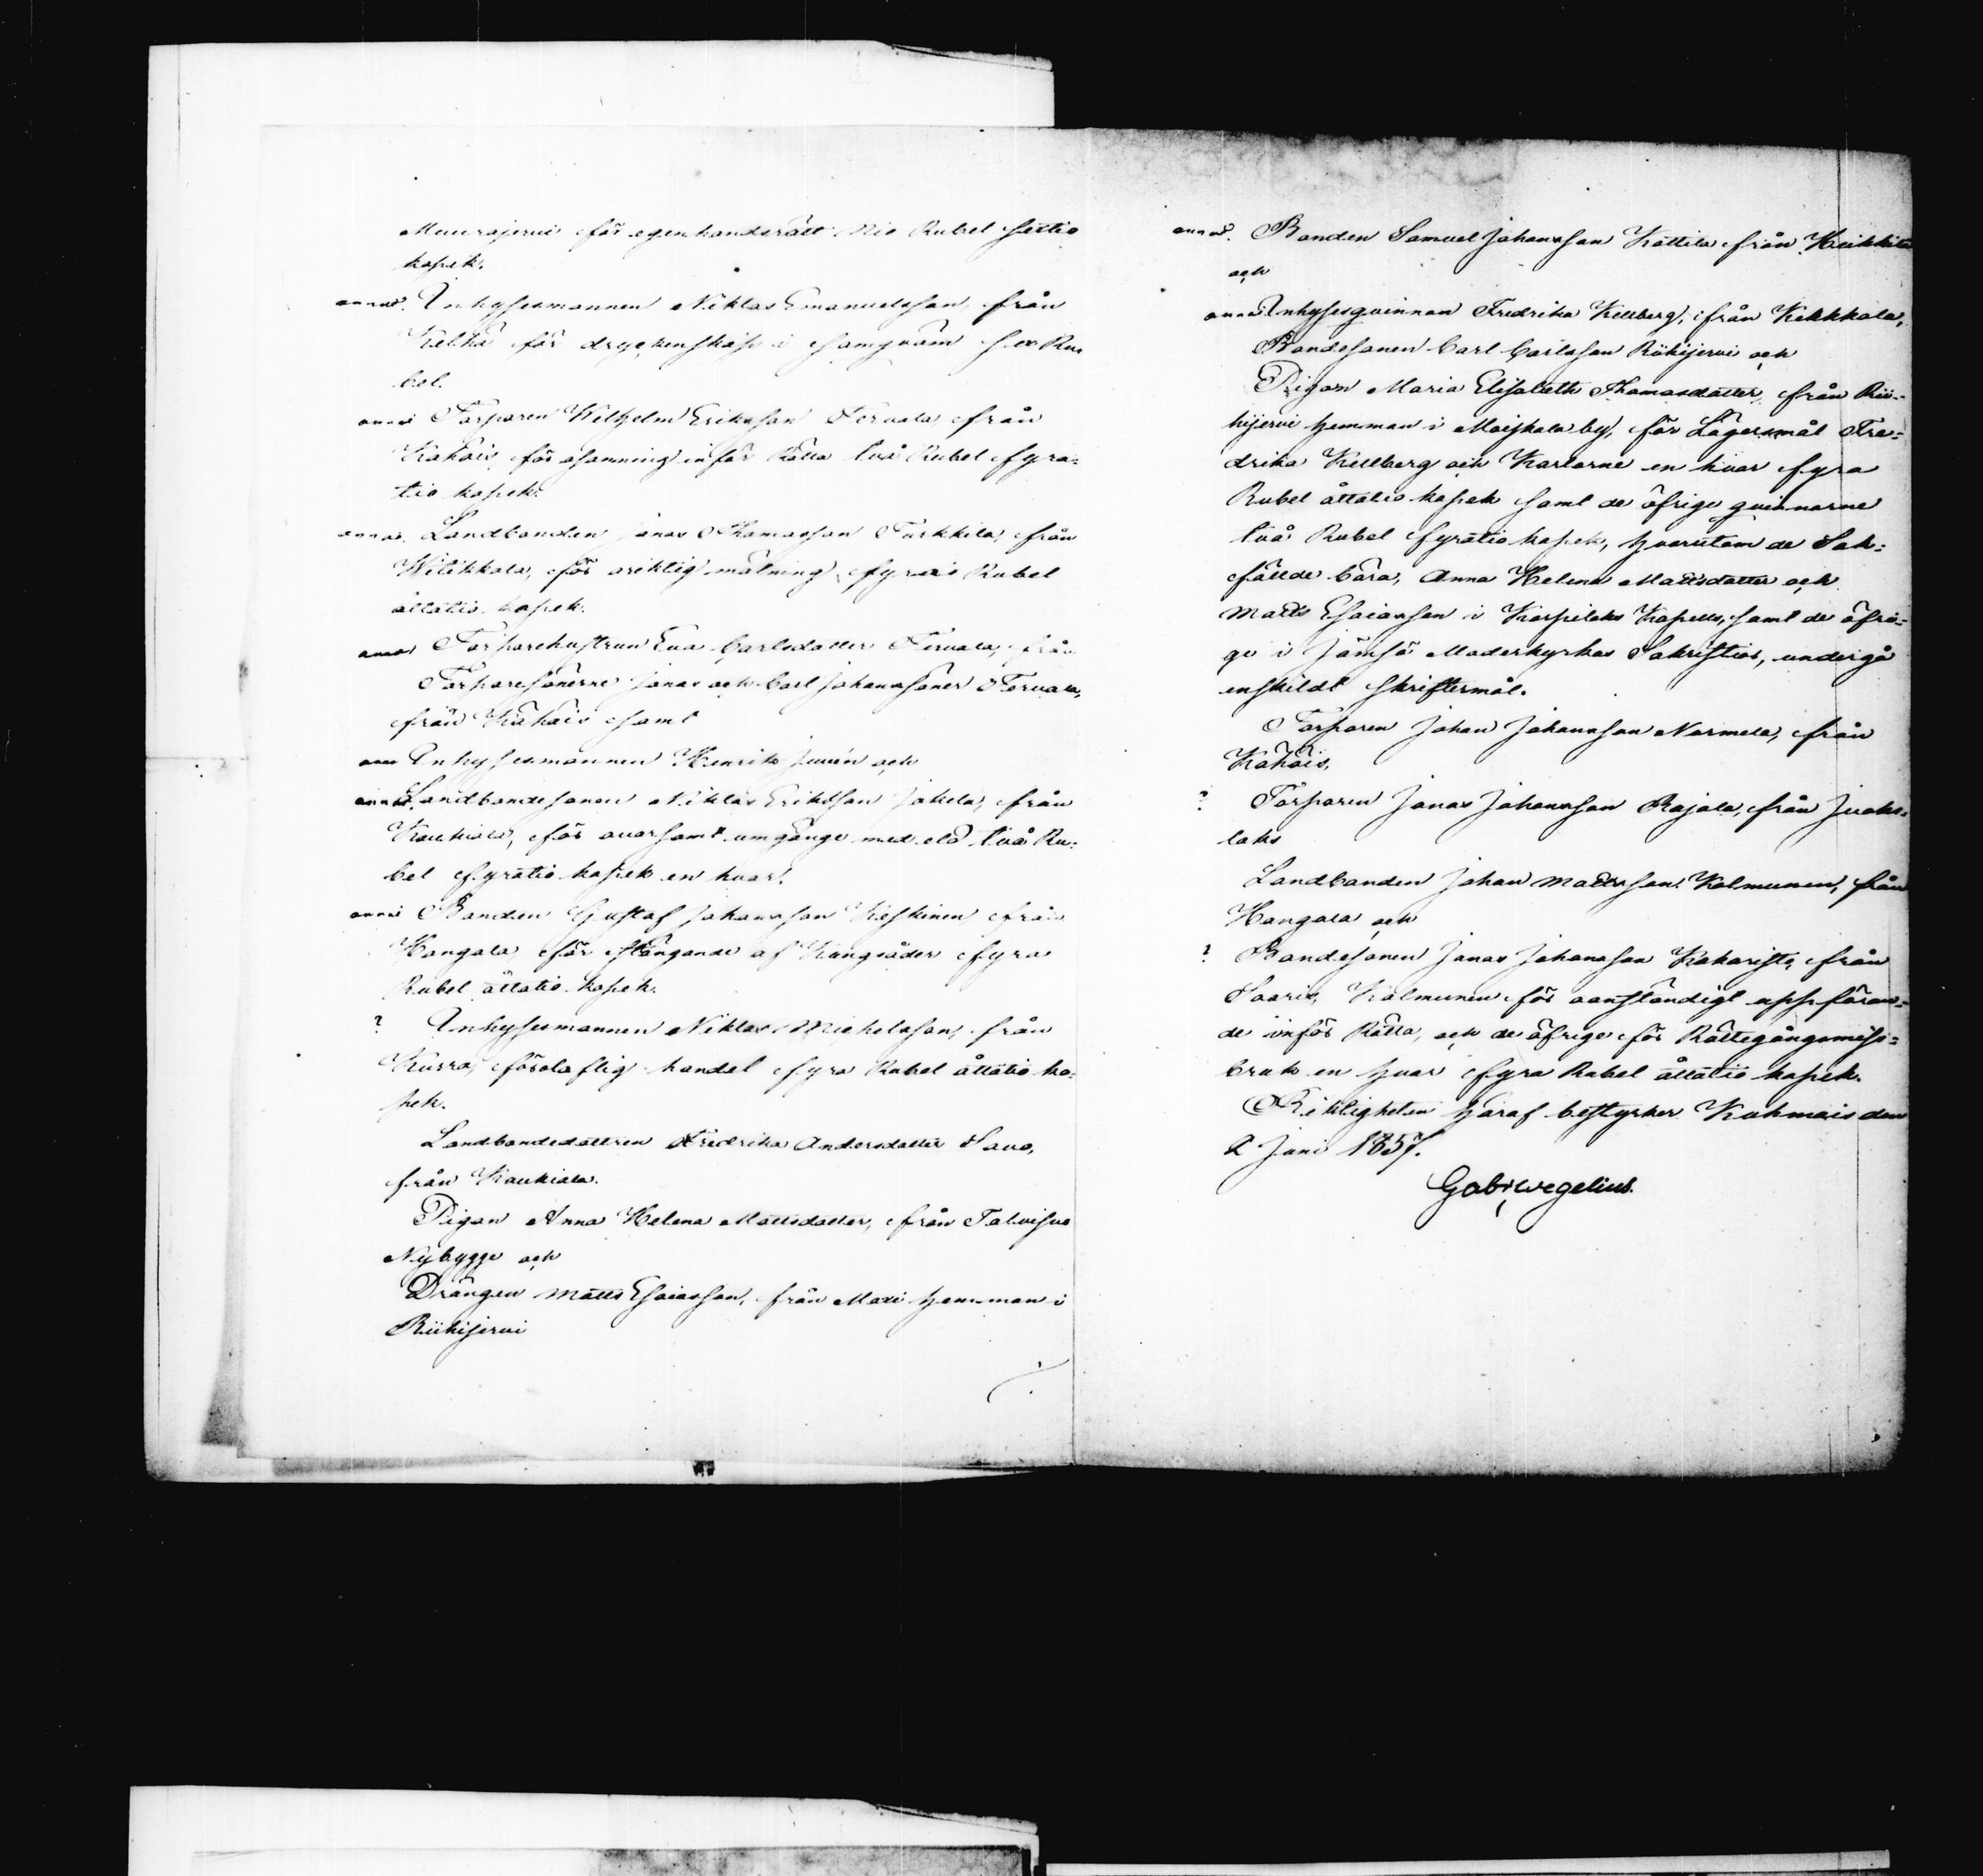 Muurajervi för egenhandsrätt Nio Rubel sextio
kopek.
annot. Inhysesmannen Niklas Emanuelsson från
Kälkä för dryckenskap i samqväm sex Ru
bel.
annot Torparen Wilhelm Eriksson Tervala från
Kähöis, för osanning inför Rätta två Rubel fyra-
tio kopek.
annot. Landbonden Jonas Thomasson Turkkila, från
Witikkala, för oriktig målning, fyra Rubel
åttatio kopek.
annot Torparehustrun Eva Carlsdotter Tervala, från
Torparesönerne Jonas och Carl Johanssöner Tervala,
från Kähöis samt
ann Inhysesmannen Henrik Juvén och
annot. Landbondesonen Niklas Eriksson Jokela, från
Koukiala, för ovarsamt umgänge med eld två Ru-
bel fyratio kopek en hvar.
annot Bonden Gustaf Johansson Keskinen från
Hangala för stängande af Kungsåder fyra
Rubel åttatio kopek.
? Inhysesmannen Niklas Michelsson, från
Kurra, för olaflig handel fyra Rubel åttatio ko-
pek.
Landbondedottren Fredrika Andersdotter Savo,
från Koukiala.
Pigan Anna Helena Mattsdotter, från Talvisuo
Nybygge och
Drängen Matts Esaiasson, från Maxi hemman i
Riihijervi
./.
annot. Bonden Samuel Johansson Kottila från Heikkilä
och
annot Inhysesqvinnan Fredrika Kellberg, från Kekkola,
Bondesonen Carl Carlsson Riihijervi och
Pigan Maria Elisabeth Thomasdotter från Rii-
hijervi hemman i Moiskala by, för Lägersmål Fre-
drika Kellberg och Karlarne en hvar fyra
Rubel åttatio kopek samt de öfriga qvinnorne
två Rubel fyratio kopek, hvarutom de Sak-
fällde böra, Anna Helena Mattsdotter och
Matts Esaiasson i Korpilaks Kapells, samt de öfri-
ge i Jämsä Moderkyrkas Sakristior, undergå
enskildt skriftermål.
Torparen Johan Johansson Normela, från
Kähöis,
? Torparen Jonas Johansson Rajala, från Juoks-
laks
Landbonden Johan Mattsson Kolmunen, från
Hangala och
? Bondesonen Jonas Johansson Kokaristo från
Saaris, Kolmunen för oanständigt uppföran-
de inför Rätta, och de öfrige för Rättegångsmiss-
bruk en hvar fyra Rubel åttatio kopek.
Riktigheten häraf bestyrker Kuhmois den
2 Juni 1857.
Gabr. Wegelius.